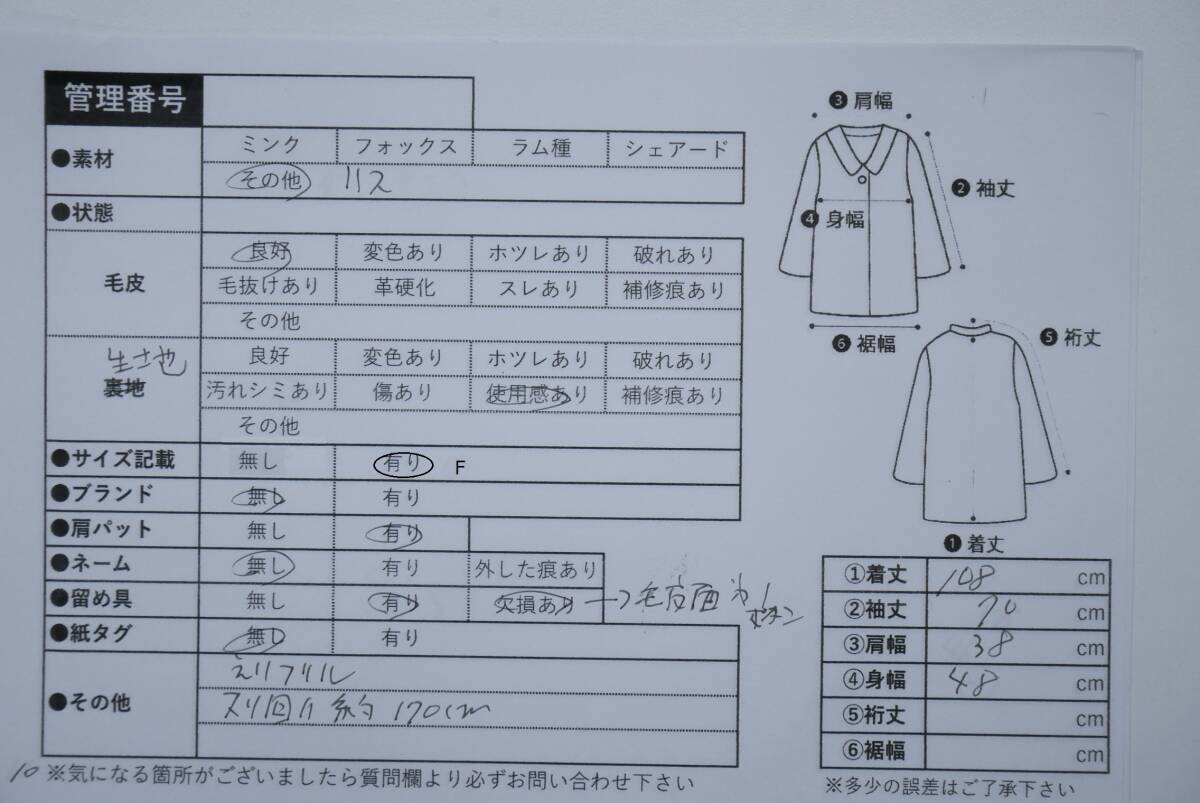 管理番号
●素材 ミンク フォックス ラム種 シェアード
その他 リス
●状態
毛皮 良好 変色あり ホツレあり 破れあり
毛抜けあり 革硬化 スレあり 補修痕あり
その他
生地
裏地 良好 変色あり ホツレあり 破れあり
汚れシミあり 傷あり 使用感あり 補修痕あり
その他
●サイズ記載 無し 有り F
●ブランド 無し 有り
●肩パット 無し 有り
●ネーム 無し 有り 外した痕あり
●留め具 無し 有り 欠損あり → 毛皮面 ボタン
●紙タグ 無し 有り
●その他
えりフリル
スソ回り 約170cm
10 ※気になる箇所がございましたら質問欄より必ずお問い合わせ下さい
❸ 肩幅
❷ 袖丈
❹ 身幅
❻ 裾幅
❺ 裄丈
❶ 着丈
①着丈 108 cm
②袖丈 70 cm
③肩幅 38 cm
④身幅 48 cm
⑤裄丈 cm
⑥裾幅 cm
※多少の誤差はご了承下さい